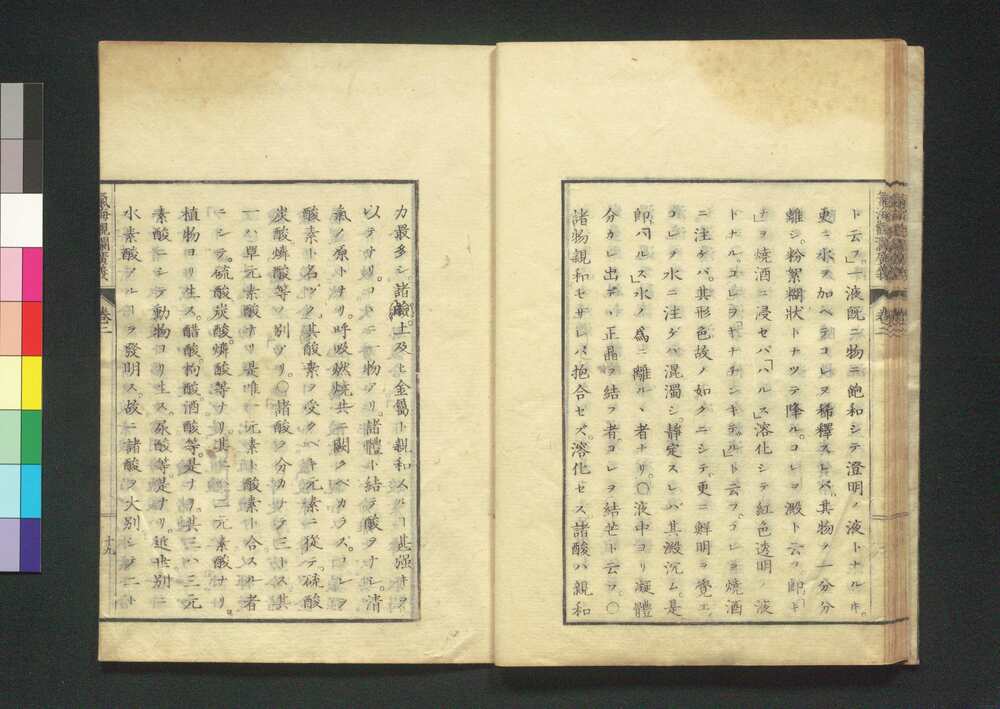 ト云フ。」一液既ニ物ニ飽和シテ澄明ノ液トナルキ。
更ニ水ヲ加ヘテコレヲ稀釋スレバ。其物ヲ一分分
離シ。粉絮糊狀トナツテ降ル。コレヲ澱ト云フ。即「ギ
」ヲ燒酒ニ浸セバ「ハルス」溶化シテ紅色透明ノ液
トナル。コレヲ「ギナチンキテュル」ト云フ。コレヲ燒酒
ニ注ゲバ。其形色故ノ如クニシテ。更ニ鮮明ヲ覺エ。
コレヲ水ニ注ゲバ混濁シ靜定スレバ其澱沉ム。是
即「ハルス」水ノ爲ニ離ルヽ者ナリ。〇液中ヨリ凝體
分カレ出デヽ正晶ヲ結ブ者。コレヲ結芒ト云フ。〇
諸物親和セザレバ抱合セズ。溶化セズ。諸酸ハ親和
力最多シ。諸鹼。土及ビ金屬ト親和スルコ甚强キヲ
以テナリ。コヽニ一物アリ。諸體ト結テ酸ヲナシ。清
氣ノ原トナリ。呼吸燃燒共ニ闕クベカラズ。コレヲ
酸素ト名ヅク。其酸素ヲ受クベキ元素ニ從テ。硫酸
炭酸燐酸等ノ別アリ。〇諸酸ヲ分カチテ三トス。其
一ハ單元素酸ナリ。是唯一元素ト酸素ト合スル者
ニシテ。硫酸炭酸燐酸等ナリ。其二ハ二元素酸ナリ。
植物ヨリ生ズ。醋酸枸酸酒酸等。是ナリ。其三ハ三元
素酸ニシテ動物ヨリ生ズ。尿酸等。是ナリ。近世別ニ
水素酸アルコヲ發明ス。故ニ諸酸ヲ大別シテ二ト
氣海觀瀾廣義
卷二
十九